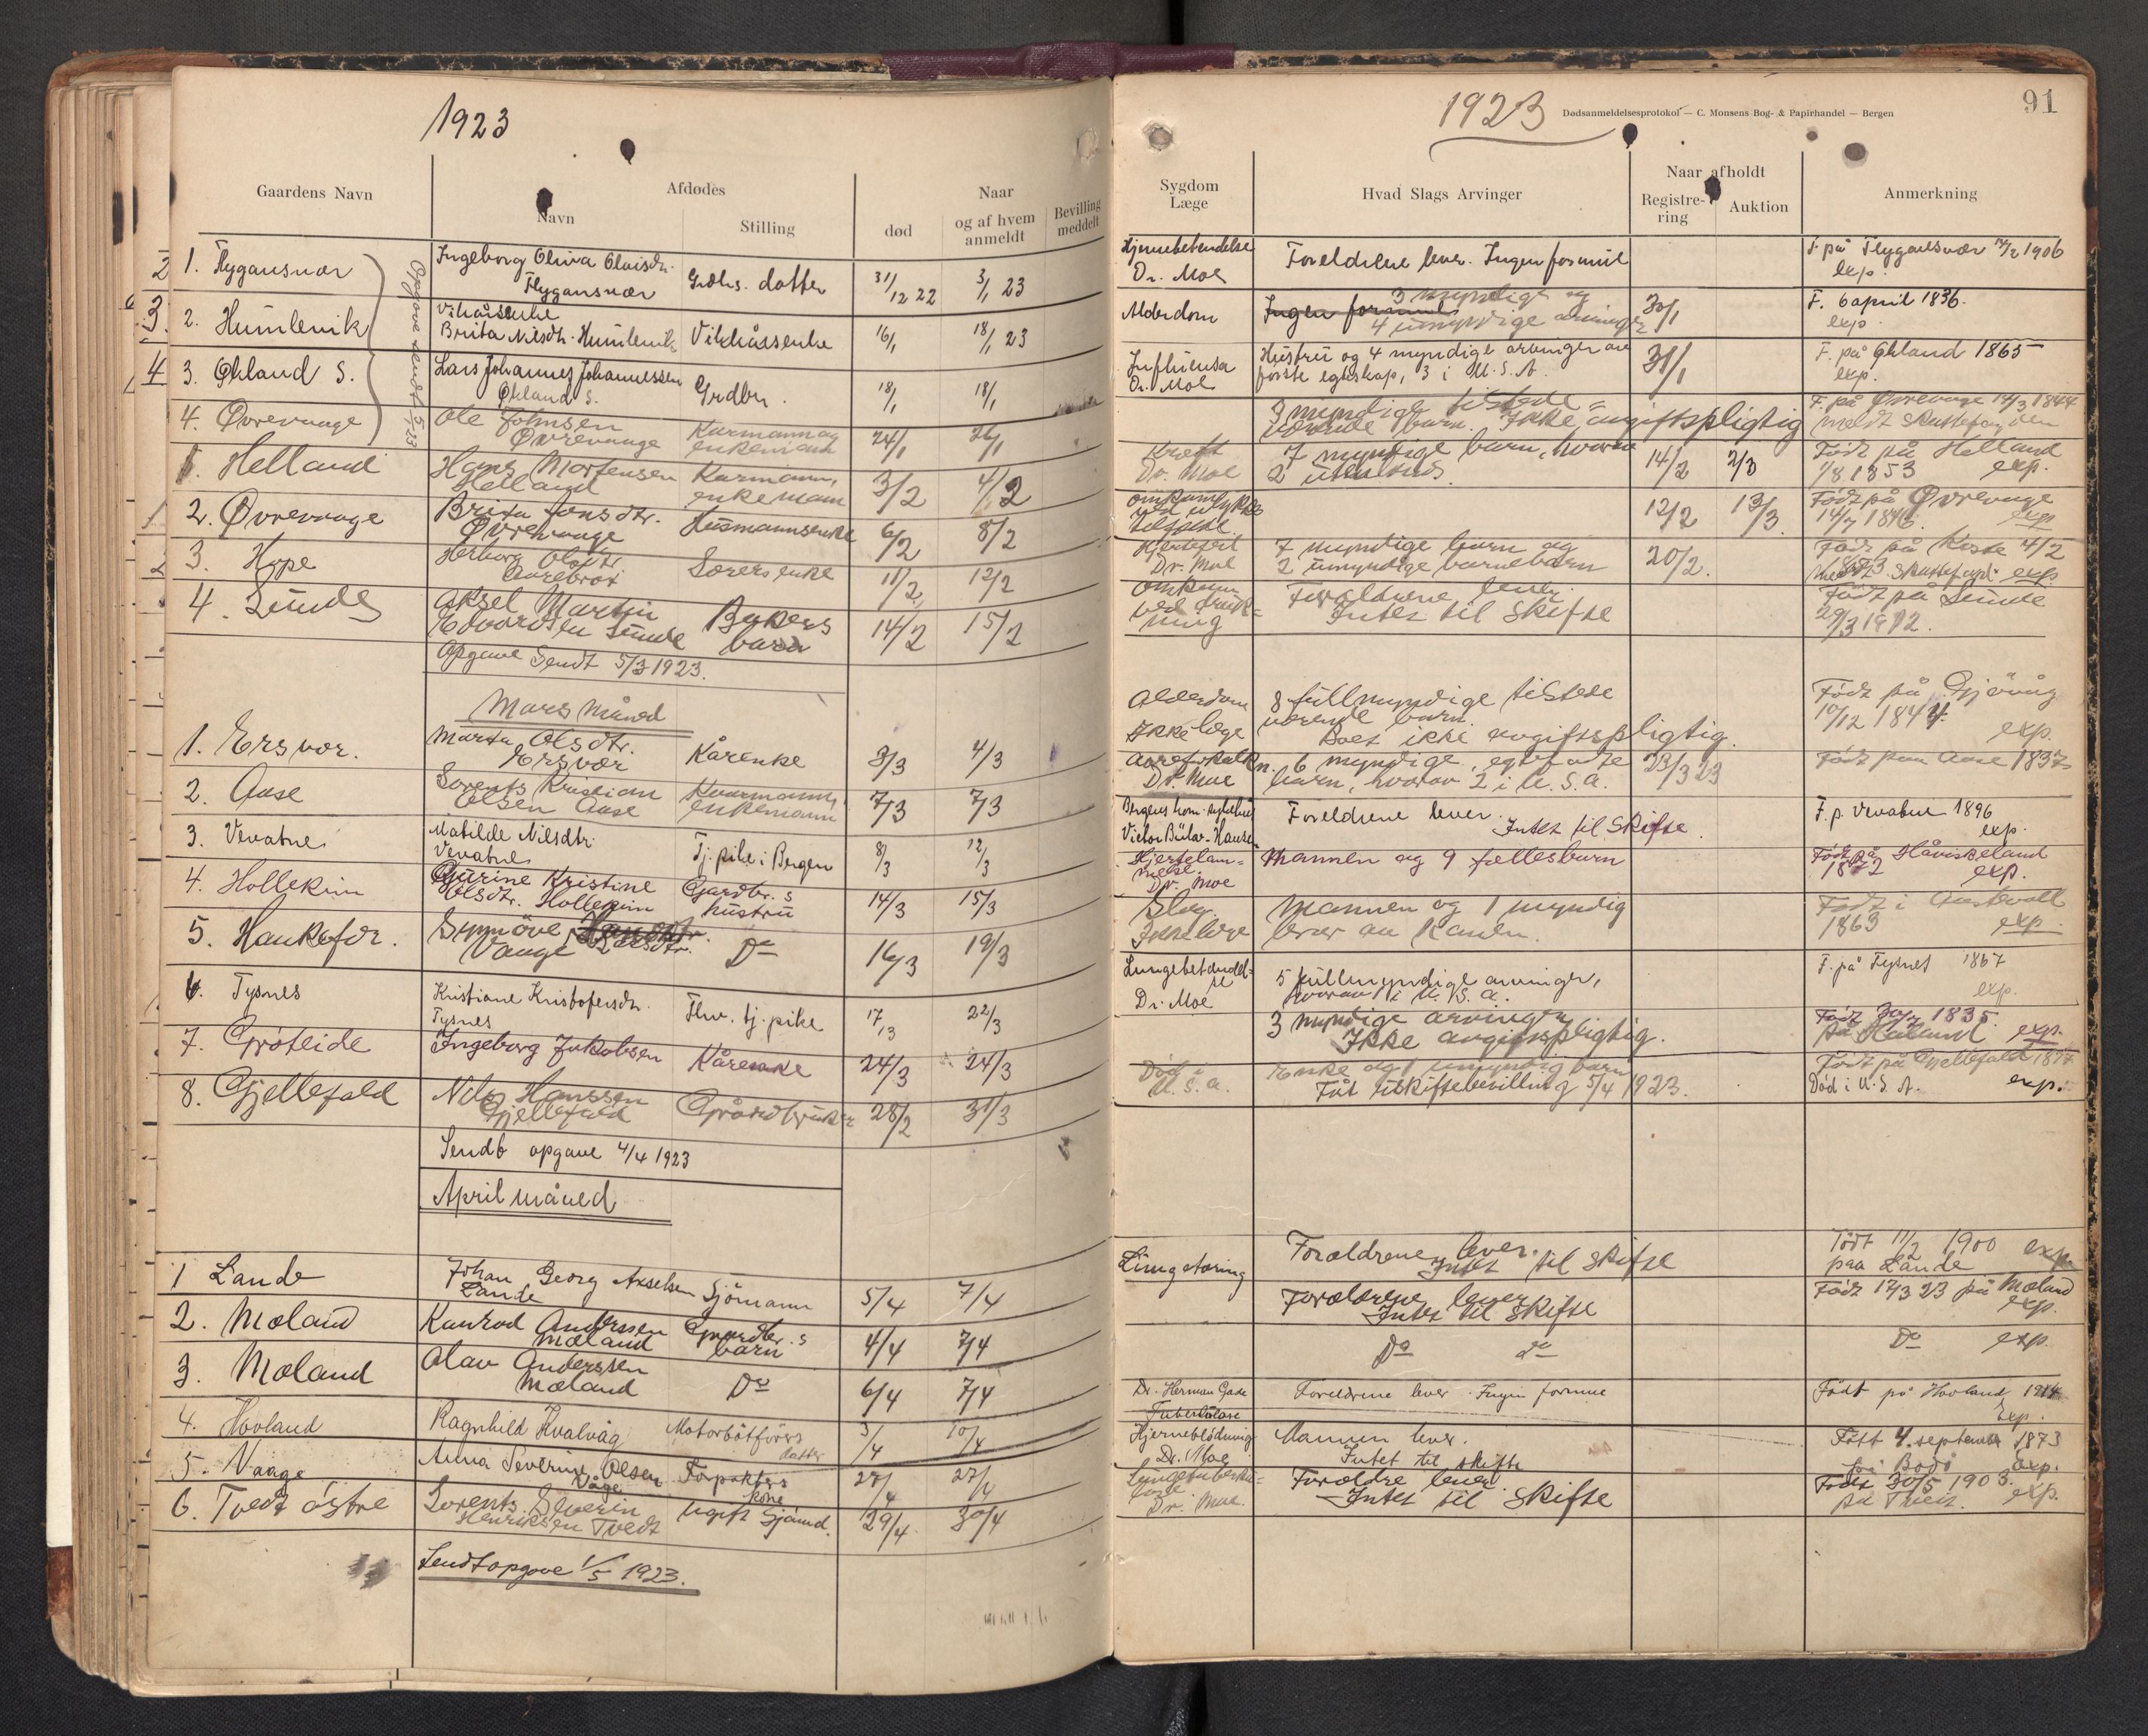 1923
Gaardens Navn
Afdødes
Navn
Stilling
død
Naar
og af hvem
anmeldt
Bevilling
meddelt
Opgave sendt 5/2 23
1. Flygansvær
Ingeborg Oliva Olvisdtr.
Flygansvær
Grdbr. datter
31/12 22
3/1 23
2. Humlevik
Vilkårsenke
Brita Nilsdtr. Humlevik
Vilkårsenke
16/1
18/1 23
3. Økland S.
Lars Johannes Johannessen
Økland S.
Grdbr.
18/1
18/1
4. Øvrevaage
Ole Johnsen
Øvrevaage
Kårmann og
enkemann
24/1
26/1
1. Helland
Hans Mortensen
Helland
Karmann,
enkemann
3/2
4/2
2. Øvrevaage
Brita Jonsdtr.
Øvrevaage
Husmannsenke
6/2
8/2
3. Hope
Herborg Olsdtr.
Aarebrot
Sorers enke
11/2
12/2
4. Lunde
Aksel Martin
Edvardsen Lunde
Bakers
barn
14/2
15/2
Opgave Sendt 5/3 1923.
Mars Måned
1. Ersvær.
Marta Olsdtr.
Ersvær
Kårenke
3/3
4/3
2. Aase
Lorents Kristian
Olsen Aase
Kaarmann,
enkemann
7/3
7/3
3. Vevatne
Matilde Nilsdtr.
Vevatne
Tj. pike i Bergen
8/3
12/3
4. Hollekim
Gurine Kristine
Olsdtr. Hollekim
Gardbr.s
hustru
14/3
15/3
5. Haukefær.
Synnöve
Vaage Larsdtr.
Do
16/3
19/3
6. Tysnes
Kristiane Kristofersdtr.
Tysnes
Fhv. tj. pike
17/3
22/3
7. Gröteide
Ingeborg Jakobsen
Kårenke
24/3
24/3
8. Gjellefald
Nils Hanssen
Gjellefald
Gårdbruker
28/2
31/3
Sendt opgave 4/4 1923
April måned
1 Lande
Johan Georg Axselsen
Lande
Sjömann
5/4
7/4
2. Mæland
Konrad Anderssen
Mæland
Gaardbr.s
barn
4/4
7/4
3. Mæland
Olav Anderssen
Mæland
Do
6/4
7/4
4. Hovland
Ragnhild Hvalvåg
Motorbåtförers
datter
3/4
10/4
5. Vaage
Anna Severine Olsen
Våge
Forpakters
kone
27/4
27/4
6. Tvedt östre
Lorents Severin
Henriksen Tvedt
Ugift Sjömd.
29/4
30/4
Sendt opgave 1/5 1923.
1923
Dødsanmeldelsesprotokol — C. Monsens Bog- & Papirhandel — Bergen
91
Sygdom
Læge
Hvad Slags Arvinger
Naar afholdt
Registre-
ring
Auktion
Anmerkning
Hjernebetendelse
Dr. Moe
Foreldrene lever. Ingen formue
F. på Flygansvær 1906
exp.
Alderdom
Ingen formue
3 myndige og
4 umyndige arvinger
30/1
F. 6 april 1836.
exp.
Influensa
Dr. Moe
Hustru og 4 myndige arvinger av
første egteskap, 3 i U.S.A.
31/1
F. på Økland 1865
exp.
3 myndige tilstede-
værende barn. Ikke avgiftspligtig
F. på Øvrevaage 14/3 1844
meldt
Kreft
Dr. Moe
7 myndige barn, hvorav
2 utenlands.
14/2
2/3
Født på Helland
1/8 1853 exp.
Omkommet
ved ulykkes
tilfælde
12/2
13/3.
Født på Øvrevaage
14/7 1846. exp.
Hjertefeil
Dr. Moe
7 myndige barn og
2 umyndige barnebarn
20/2.
exp.
Omkom
ved druk=
ning
Foreldrene lever.
Intet til Skifte
Født på Lunde
29/3 1912.
Alderdom
Ikke læge
8 fullmyndige tilstede
værende barn.
Boet ikke avgiftspligtig.
Født på Gjövåg
10/12 1844.
exp.
Aareforkalkn.
Dr. Moe
6 myndige, egtefødte
barn, hvorav 2 i U.S.A.
23/3 23
Født paa Aase 1837
Bergens kom. sykehus
Victor Bülow-Hansen
Foreldrene lever.
Intet til Skifte.
F. p. Vevatne 1896
exp.
Hjertelam=
melse.
Dr. Moe
Mannen og 9 fællesbarn
Født på Håviskeland
1872 exp.
Slag.
Ikke læge
Mannen og 1 myndig
bror av konen.
Født i Austevoll
1863 exp.
Lungebetendel-
se
Dr. Moe
5 fullmyndige arvinger,
hvorav 1 i U.S.A.
F. på Tysnes 1867
exp.
3 myndige arvinger
Ikke avgiftspligtig.
1835.
exp.
Död i
U.S.A.
Enke og 1 umyndig barn
Fåt uskiftebevilling 5/4 1923.
Født på Gjellefald 1877
Död i U.S.A. exp.
Lungetæring
Foreldrene lever.
Intet til Skifte
Født 11/2 1900 exp.
paa Lande
Foreldrene lever
Intet til Skifte
Født 17/3 23 på Mæland
exp.
Do do
Do exp.
Dr. Herman Gade
Tuberkulose
Foreldrene lever. Ingen formue
Født på Hovland, 1914
Exp.
Hjerneblødning
Dr. Moe
Mannen lever.
Intet til skifte
Født 4. september 1873
i Bodö exp.
Lungetuberku=
lose
Dr. Moe.
Foreldre lever.
Intet til Skifte
Født 30/5 1903.
på Tvedt. exp.